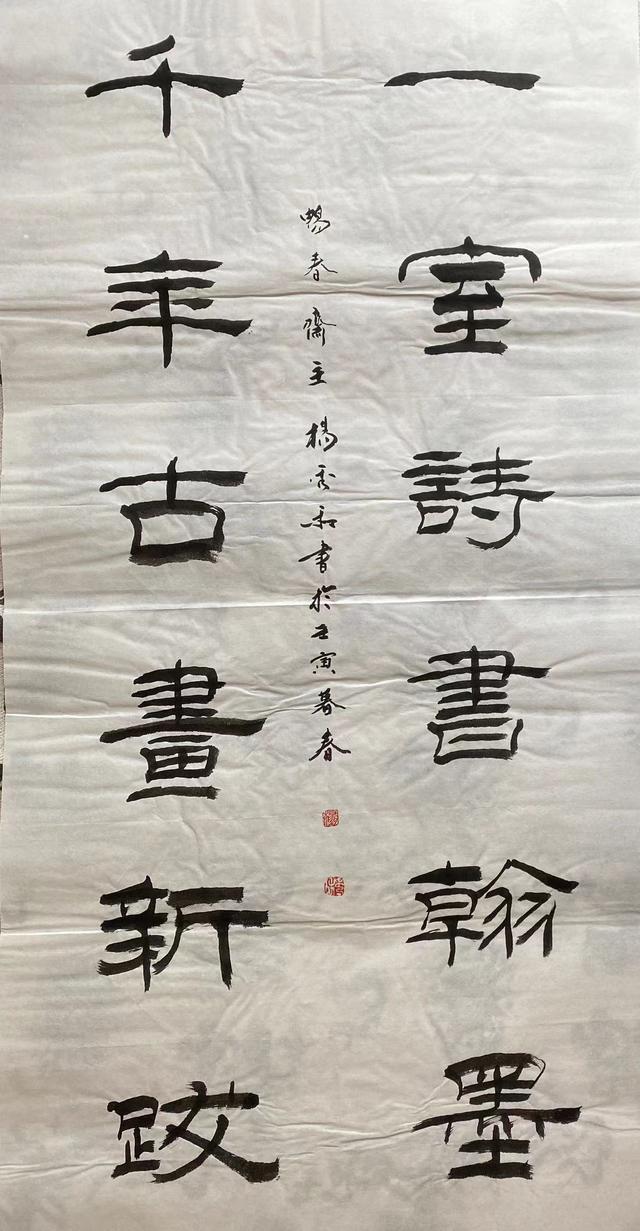 一室詩書翰墨
千年古畫新跋
暢春齋主 楊秀和書於壬寅暮春